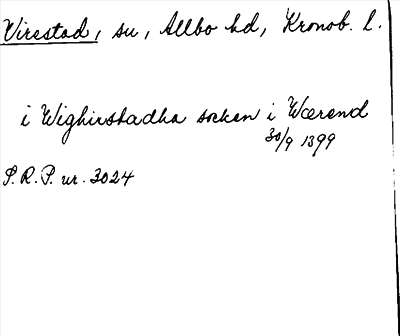 Virestad, sn, Allbo hd, Kronob. l.
i Wighirstadha soken i Wærend
30/9 1399
S.R.P. nr. 3024